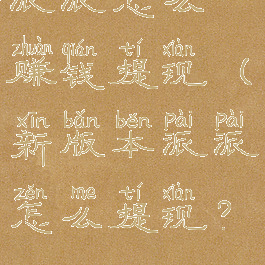 派派怎么
zhuàn qián tí xiàn
赚钱提现（
xīn bǎn běn pài pài
新版本派派
zěn me tí xiàn
怎么提现？